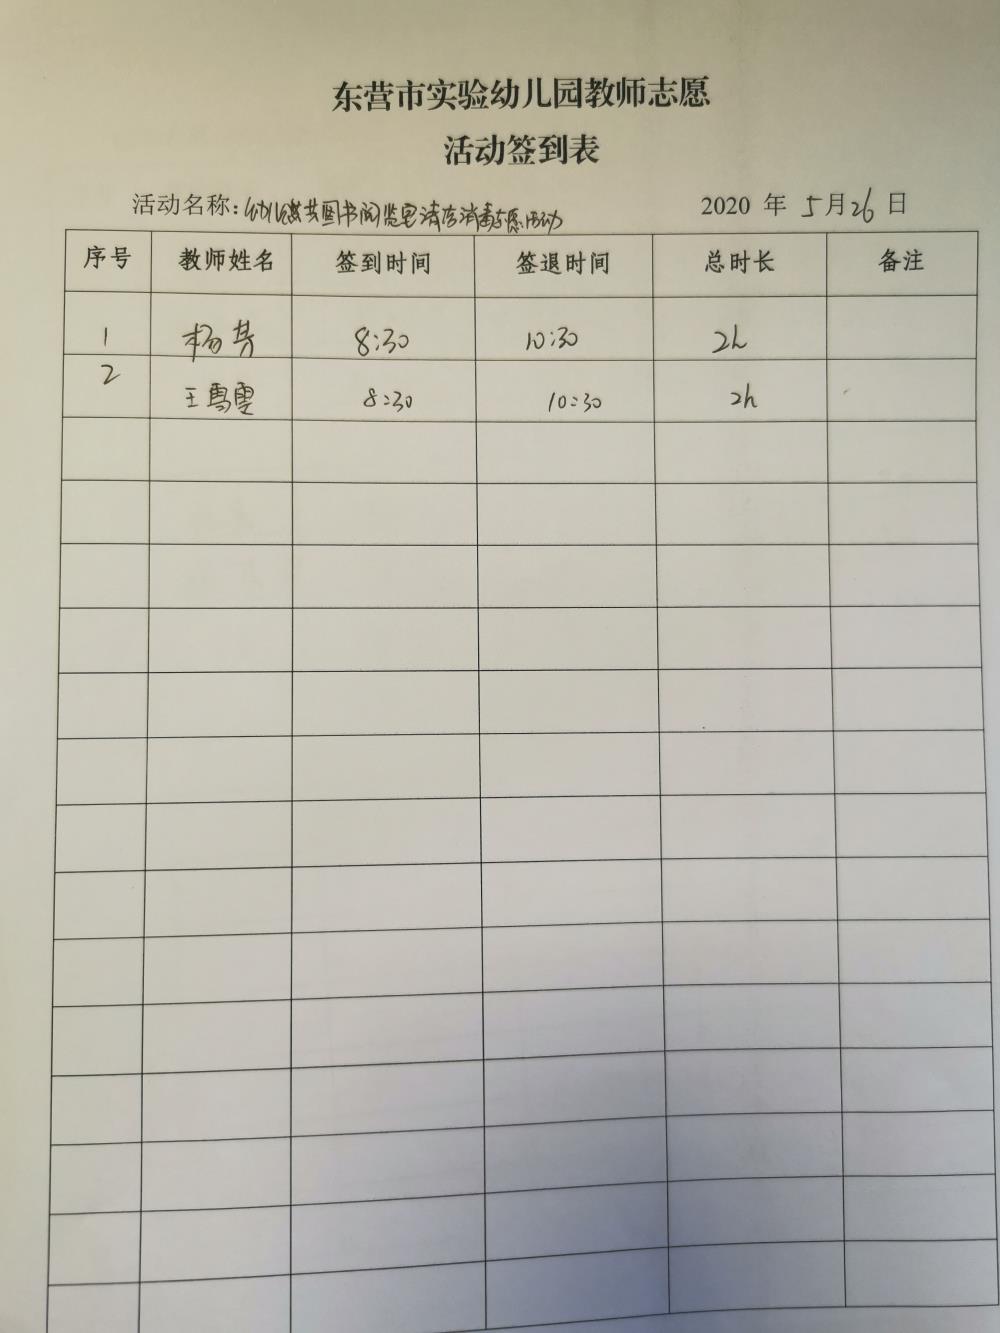 东营市实验幼儿园教师志愿
活动签到表
活动名称：幼儿园公共图书阅览室清洁消毒志愿活动 2020 年 5 月 26 日
序号 教师姓名 签到时间 签退时间 总时长 备注
1 杨芳 8:30 10:30 2h
2 王雪 8:30 10:30 2h